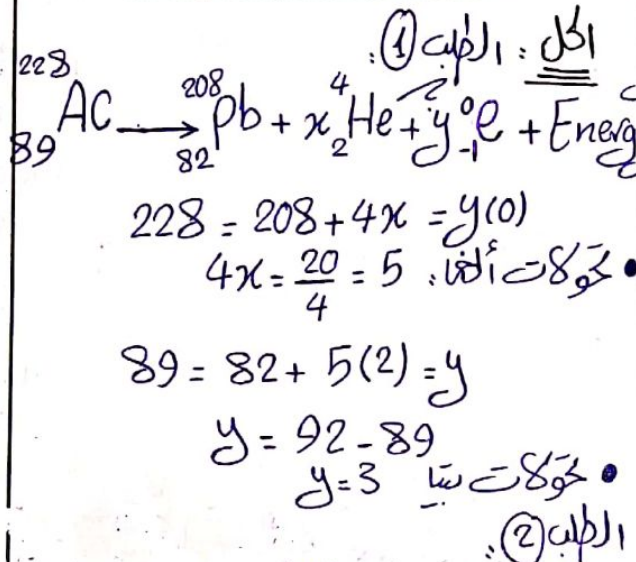 الحل: الطلب ①:
²²⁸₈₉Ac → ²⁰⁸₈₂Pb + x ⁴₂He + y ⁰₋₁e + Energ
228 = 208 + 4x = y(0)
4x = 20/4 = 5 تحولات ألفا: •
89 = 82 + 5(2) = y
y = 92 - 89
y = 3 تحولات بيتا •
الطلب ②: